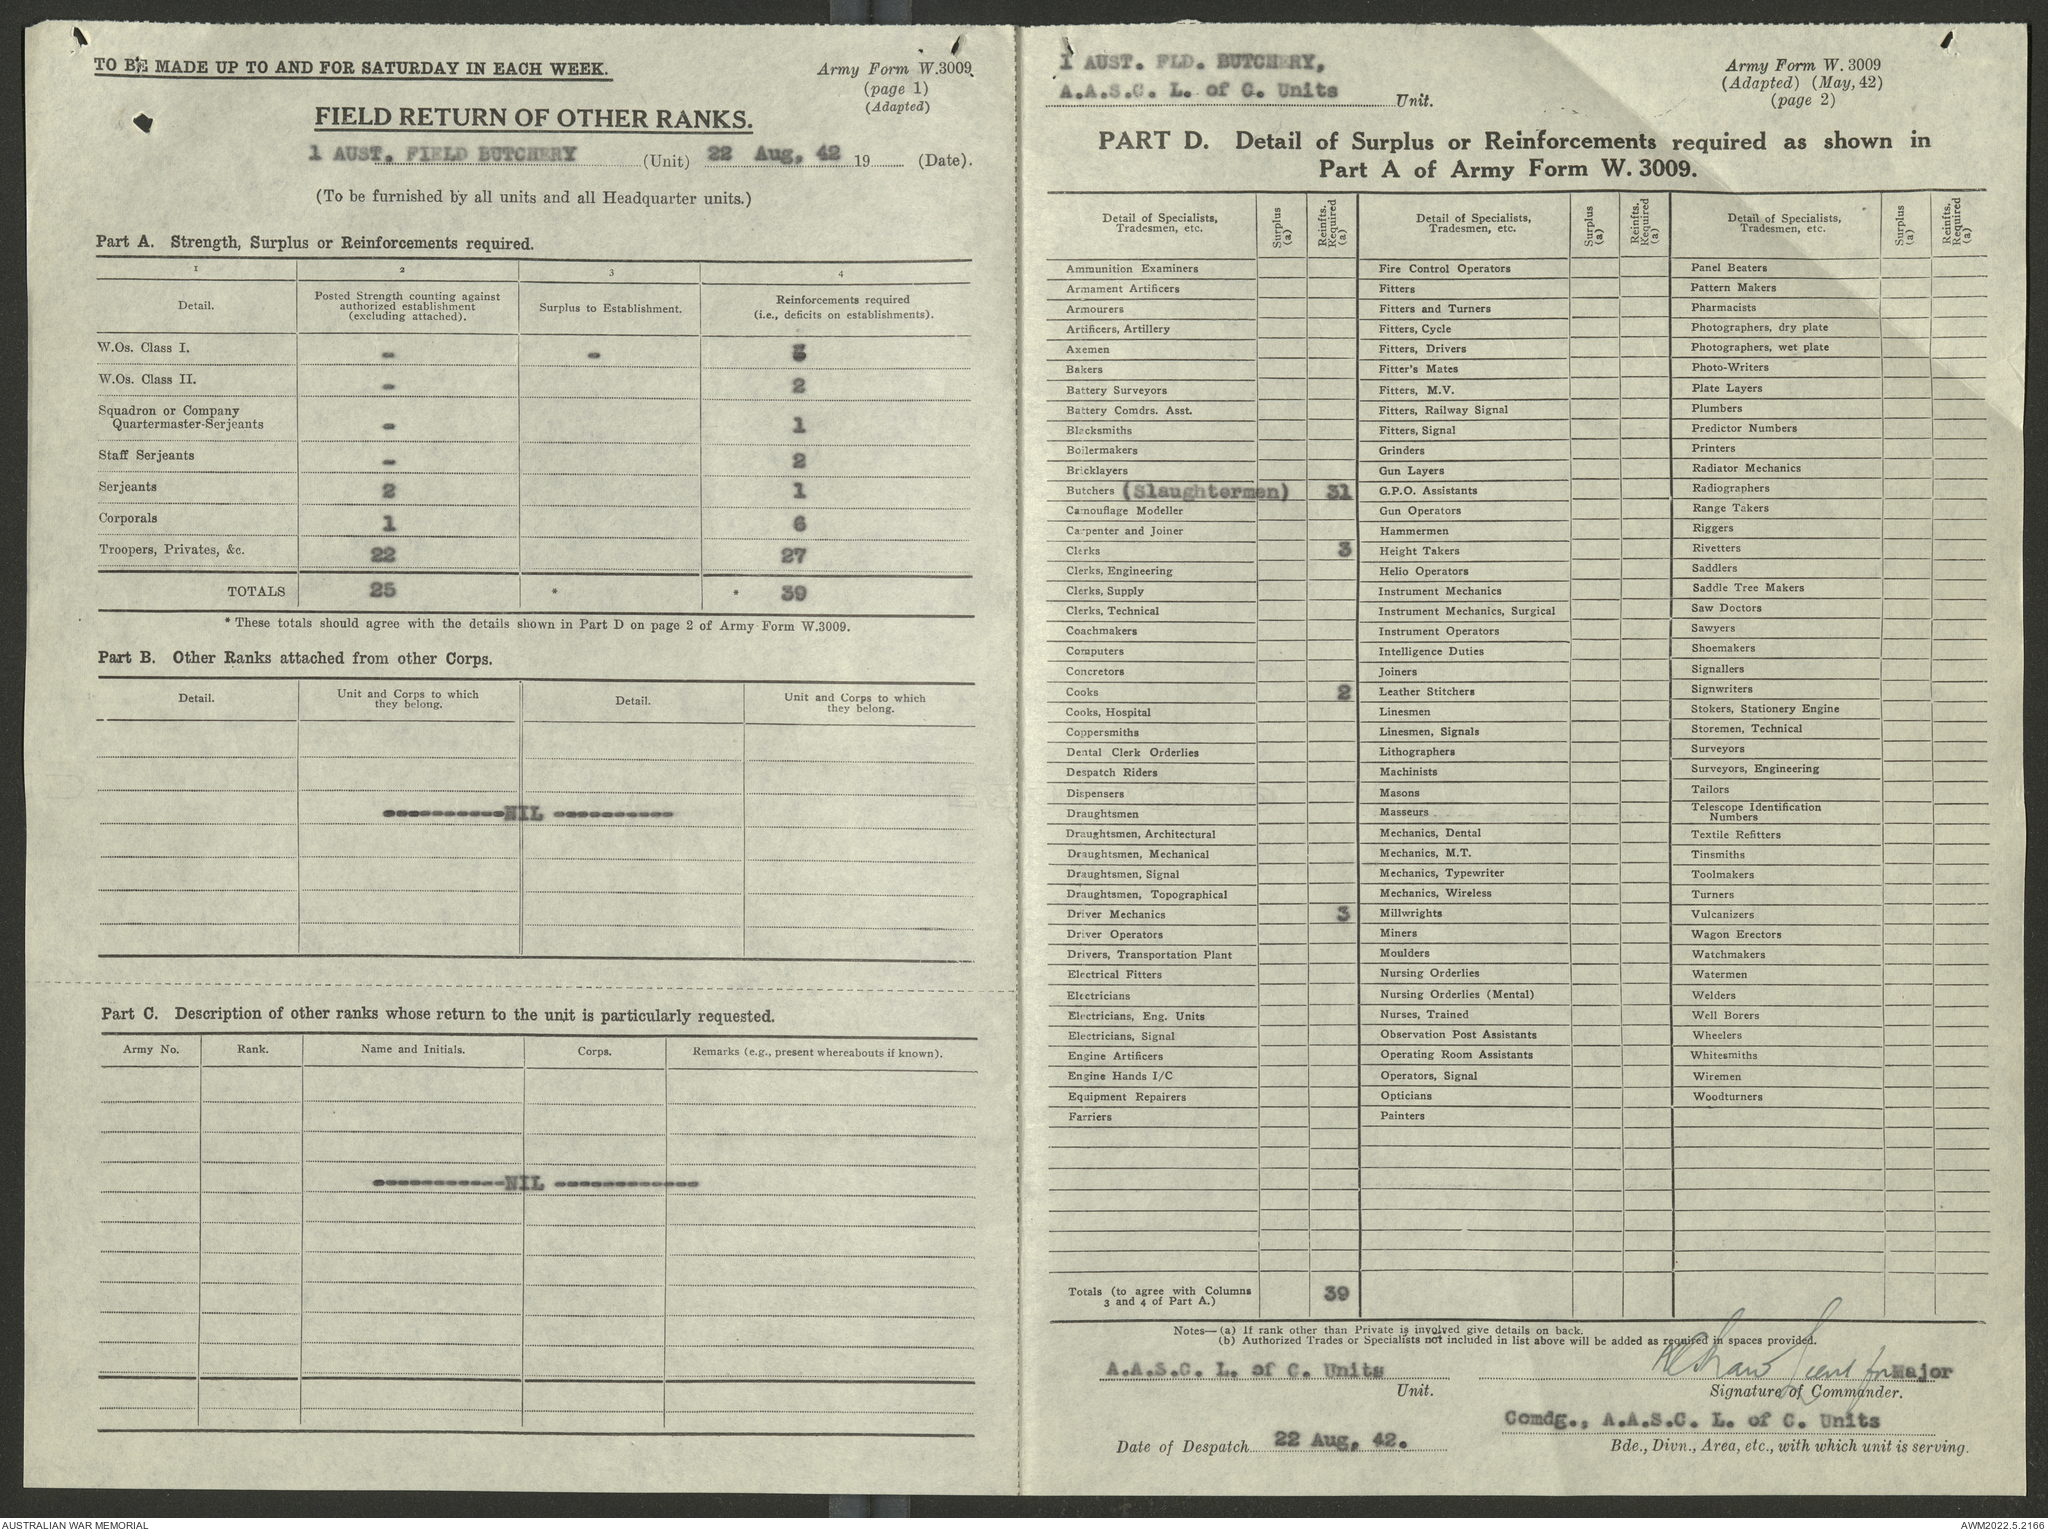 TO BE MADE UP TO AND FOR SATURDAY IN EACH WEEK.
Army Form W.3009
(page 1)
(Adapted)
FIELD RETURN OF OTHER RANKS.
1 AUST. FIELD BUTCHERY (Unit) 22 Aug, 42 19 (Date).
(To be furnished by all units and all Headquarter units.)
Part A. Strength, Surplus or Reinforcements required.
1 2 3 4
Detail. Posted Strength counting against authorized establishment (excluding attached). Surplus to Establishment. Reinforcements required (i.e., deficits on establishments).
W.Os. Class I. - -
W.Os. Class II. - 2
Squadron or Company
Quartermaster-Serjeants - 1
Staff Serjeants - 2
Serjeants 2 1
Corporals 1 6
Troopers, Privates, &c. 22 27
TOTALS 25 * * 39
* These totals should agree with the details shown in Part D on page 2 of Army Form W.3009.
Part B. Other Ranks attached from other Corps.
Detail. Unit and Corps to which they belong. Detail. Unit and Corps to which they belong.
----------NIL ----------
Part C. Description of other ranks whose return to the unit is particularly requested.
Army No. Rank. Name and Initials. Corps. Remarks (e.g., present whereabouts if known).
-----------NIL ------------
1 AUST. FLD. BUTCHERY,
A.A.S.C. L. of C. Units Unit.
Army Form W. 3009
(Adapted) (May, 42)
(page 2)
PART D. Detail of Surplus or Reinforcements required as shown in
Part A of Army Form W. 3009.
Detail of Specialists, Tradesmen, etc. Surplus (a) Reinfts. Required (a) Detail of Specialists, Tradesmen, etc. Surplus (a) Reinfts. Required (a) Detail of Specialists, Tradesmen, etc. Surplus (a) Reinfts. Required (a)
Ammunition Examiners
Armament Artificers
Armourers
Artificers, Artillery
Axemen
Bakers
Battery Surveyors
Battery Comdrs. Asst.
Blacksmiths
Boilermakers
Bricklayers
Butchers (Slaughtermen) 31
Camouflage Modeller
Carpenter and Joiner
Clerks 3
Clerks, Engineering
Clerks, Supply
Clerks, Technical
Coachmakers
Computers
Concretors
Cooks 2
Cooks, Hospital
Coppersmiths
Dental Clerk Orderlies
Despatch Riders
Dispensers
Draughtsmen
Draughtsmen, Architectural
Draughtsmen, Mechanical
Draughtsmen, Signal
Draughtsmen, Topographical
Driver Mechanics 3
Driver Operators
Drivers, Transportation Plant
Electrical Fitters
Electricians
Electricians, Eng. Units
Electricians, Signal
Engine Artificers
Engine Hands I/C
Equipment Repairers
Farriers
Fire Control Operators
Fitters
Fitters and Turners
Fitters, Cycle
Fitters, Drivers
Fitter's Mates
Fitters, M.V.
Fitters, Railway Signal
Fitters, Signal
Grinders
Gun Layers
G.P.O. Assistants
Gun Operators
Hammermen
Height Takers
Helio Operators
Instrument Mechanics
Instrument Mechanics, Surgical
Instrument Operators
Intelligence Duties
Joiners
Leather Stitchers
Linesmen
Linesmen, Signals
Lithographers
Machinists
Masons
Masseurs
Mechanics, Dental
Mechanics, M.T.
Mechanics, Typewriter
Mechanics, Wireless
Millwrights
Miners
Moulders
Nursing Orderlies
Nursing Orderlies (Mental)
Nurses, Trained
Observation Post Assistants
Operating Room Assistants
Operators, Signal
Opticians
Painters
Panel Beaters
Pattern Makers
Pharmacists
Photographers, dry plate
Photographers, wet plate
Photo-Writers
Plate Layers
Plumbers
Predictor Numbers
Printers
Radiator Mechanics
Radiographers
Range Takers
Riggers
Rivetters
Saddlers
Saddle Tree Makers
Saw Doctors
Sawyers
Shoemakers
Signallers
Signwriters
Stokers, Stationery Engine
Storemen, Technical
Surveyors
Surveyors, Engineering
Tailors
Telescope Identification
Numbers
Textile Refitters
Tinsmiths
Toolmakers
Turners
Vulcanizers
Wagon Erectors
Watchmakers
Watermen
Welders
Well Borers
Wheelers
Whitesmiths
Wiremen
Woodturners
Totals (to agree with Columns
3 and 4 of Part A.) 39
Notes— (a) If rank other than Private is involved give details on back.
(b) Authorized Trades or Specialists not included in list above will be added as required in spaces provided.
A.A.S.C. L. of C. Units
Unit.
for Major
Signature of Commander.
Comdg., A.A.S.C. L. of C. Units
Date of Despatch 22 Aug, 42.
Bde., Divn., Area, etc., with which unit is serving.
AUSTRALIAN WAR MEMORIAL
AWM2022.5.2166